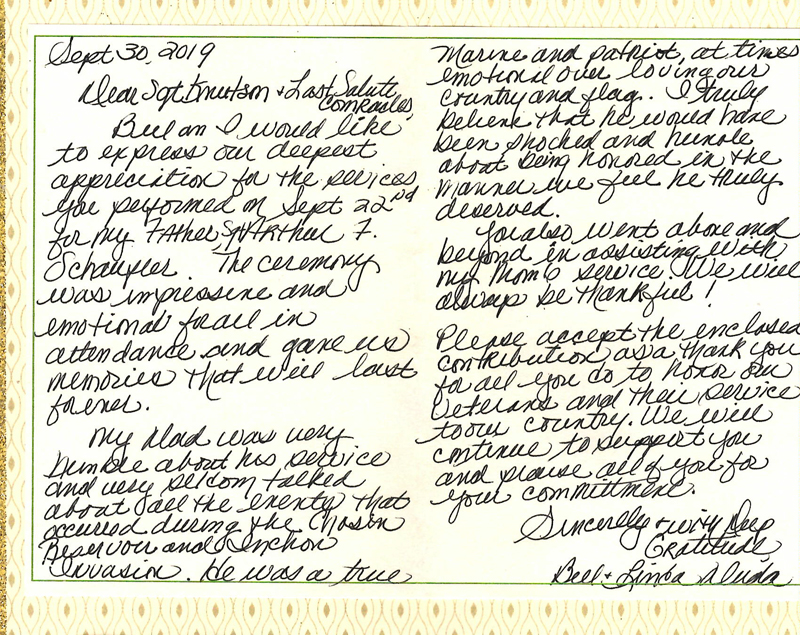 Sept 30, 2019
Dear Sgt Knutson + Last Salute
Comrades,
Bill an I would like
to express our deepest
appreciation for the services
you performed on Sept 22nd
for my Father, Sgt Arthur F.
The ceremony
was impressive and
emotional for all in
attendance and gave us
memories that will last
forever.
My Dad was very
humble about his service
and very seldom talked
about all the events that
occurred during the Chosin
Reservoir and Inchon
Invasion. He was a true
Marine and patriot, at times
emotional over loving our
country and flag. I truly
believe that he would have
been shocked and humble
about being honored in the
manner we feel he truly
deserved.
You also went above and
beyond in assisting with
my Moms service. We will
always be thankful!
Please accept the enclosed
contribution as a thank you
for all you do to honor our
Veterans and their service
to our country. We will
continue to support you
and praise all of you for
your committment.
Sincerely + with Deep
Gratitude,
Bill + Linda